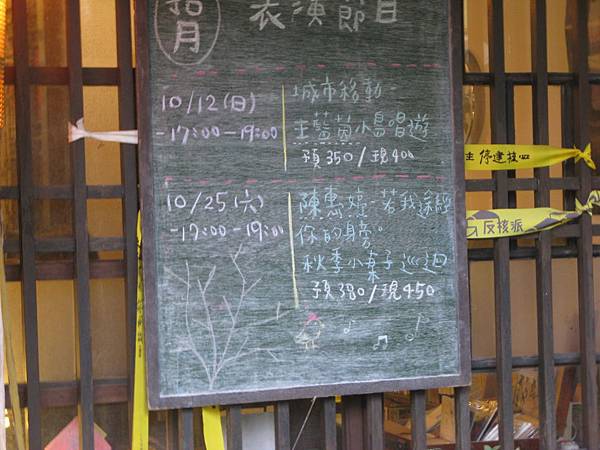 拾月
表演節目
10/12(日)
-17:00-19:00
城市移動-
王藍茵小島唱遊
預350/現400
10/25(六)
-17:00-19:00
陳惠婷-若我途經
你的身旁。
秋季小葉子巡迴
預380/現450
停建核四
反核派